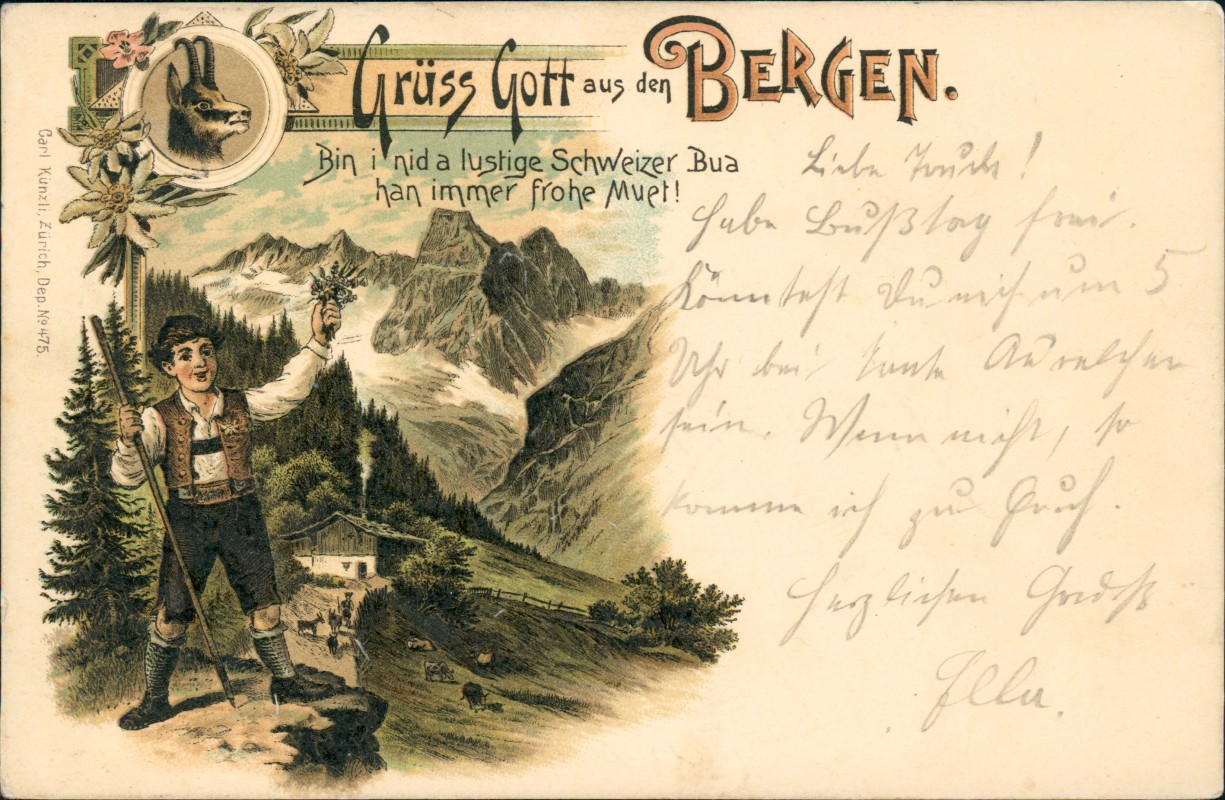 Grüss Gott aus den BERGEN.
Bin i nid a lustige Schweizer Bua
han immer frohe Muet!
Carl Künzli, Zürich, Dep. No 475.
Liebe !
Habe Bußtag frei.
Könntest Du nicht um 5
Uhr bei Tante
sein. Wenn nicht, so
komme ich zu Euch.
Herzlichen Gruß
Ella.